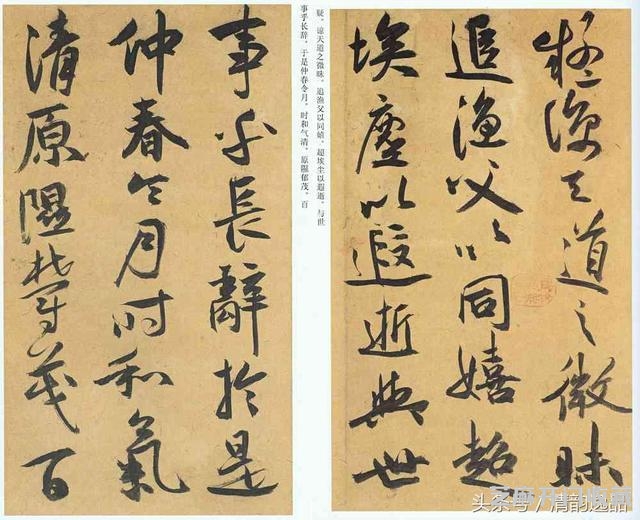 疑諒天道之微昧
追漁父以同嬉超
埃塵以遐逝與世
疑。谅天道之微昧,追渔父以同嬉。超埃尘以遐逝,与世
事乎长辞。于是仲春令月,时和气清,原隰郁茂,百
事乎長辭於是
仲春令月時和氣
清原隰鬱茂百
头条号/清韵逸品